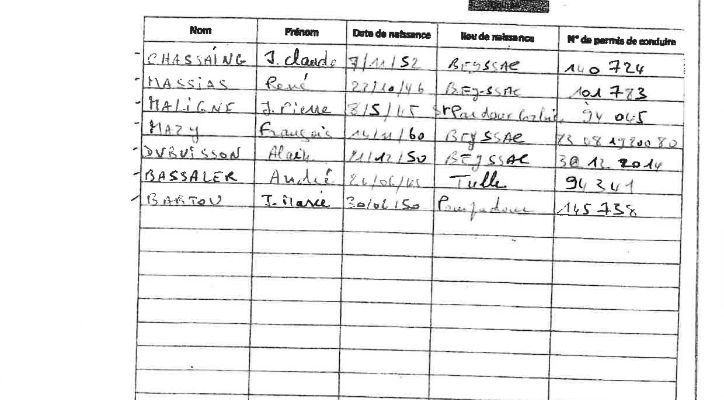 Nom Prénom Date de naissance lieu de naissance N° de permis de conduire
CHASSAING J. claude 7/11/52 BEYSSAC 140 724
MASSIAS René BEYSSAC 101 783
MALIGNE J. Pierre 8/5/45 St 94 045
MAZY François 14/11/60 BEYSSAC
DUBUISSON Alain 21/12/50 BEYSSAC 30.12.2014
BASSALER André Tulle 94341
BARTOU J. Marie 30/06/50 Pompadour 145738